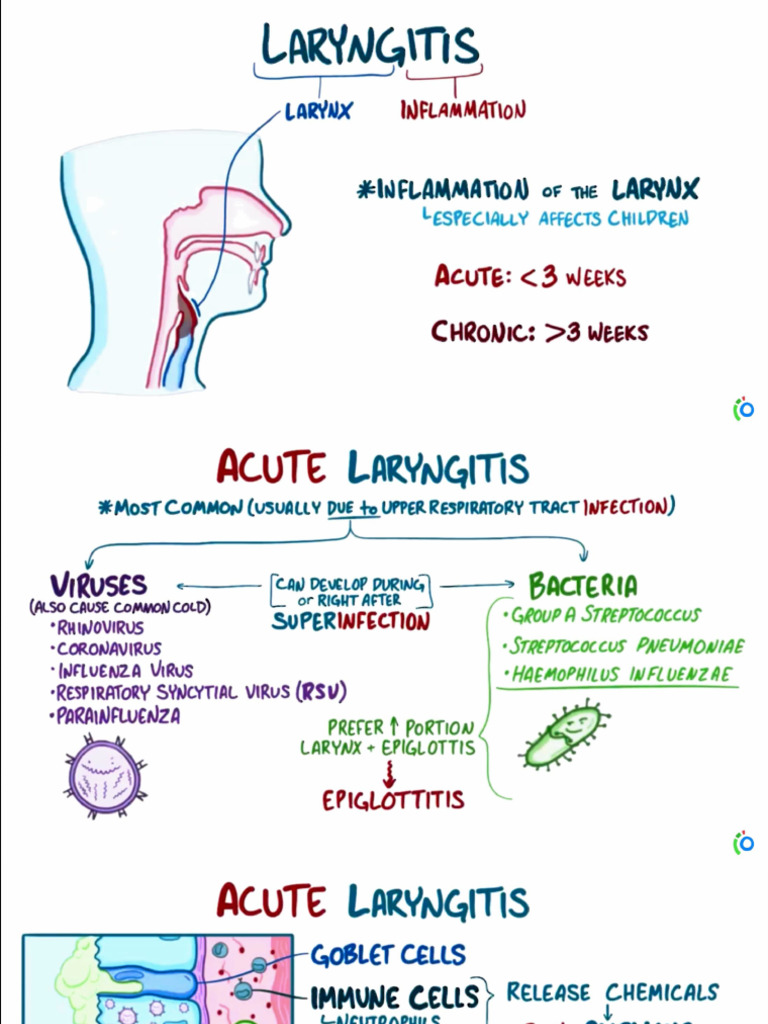 LARYNGITIS
LARYNX INFLAMMATION
*INFLAMMATION OF THE LARYNX
ESPECIALLY AFFECTS CHILDREN
ACUTE: <3 WEEKS
CHRONIC: >3 WEEKS
ACUTE LARYNGITIS
*MOST COMMON (USUALLY DUE to UPPER RESPIRATORY TRACT INFECTION)
VIRUSES
(ALSO CAUSE COMMON COLD)
• RHINOVIRUS
• CORONAVIRUS
• INFLUENZA VIRUS
• RESPIRATORY SYNCYTIAL VIRUS (RSV)
• PARAINFLUENZA
[CAN DEVELOP DURING
or RIGHT AFTER]
SUPERINFECTION
BACTERIA
• GROUP A STREPTOCOCCUS
• STREPTOCOCCUS PNEUMONIAE
• HAEMOPHILUS INFLUENZAE
PREFER ↑ PORTION
LARYNX + EPIGLOTTIS
EPIGLOTTITIS
ACUTE LARYNGITIS
GOBLET CELLS
IMMUNE CELLS
NEUTROPHILS
RELEASE CHEMICALS